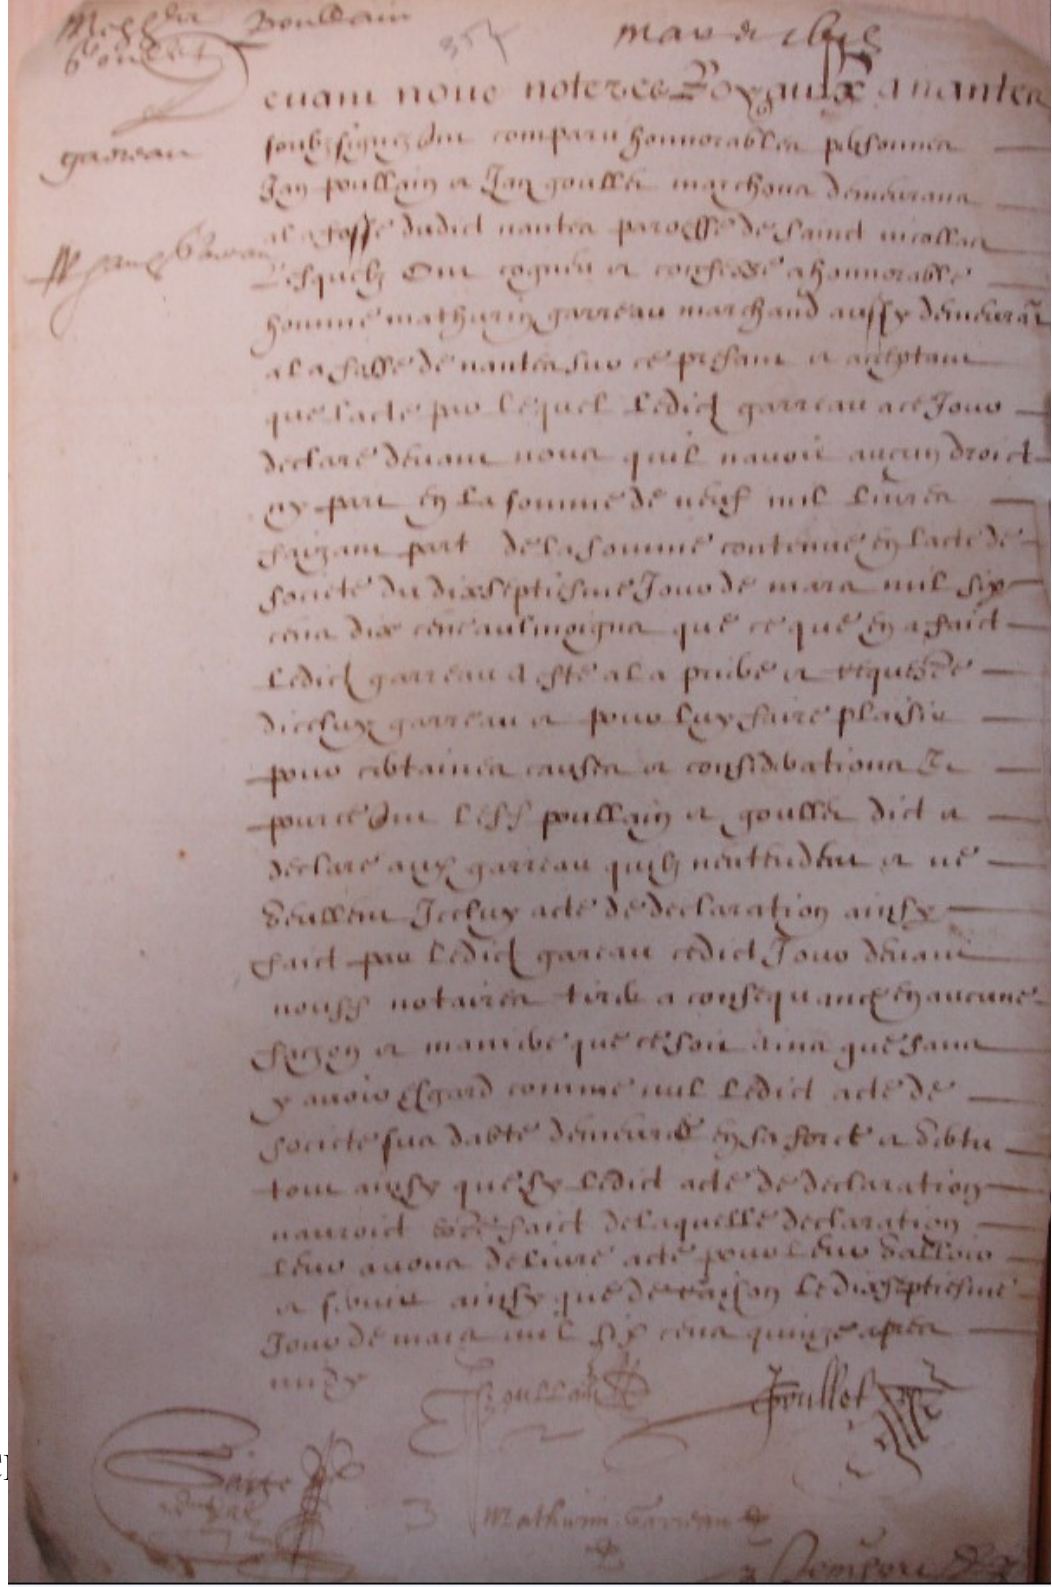 Poullain
Goullet
mars 1615
garreau
Devant nous noteres Royaulx a nantes
soubzsignez ont comparu honnorables personnes
Jan poullain et Jan goullet marchans demeurans
a la fosse dudict nantes paroesse de sainct nicollas
Lesquelz ont cogneu et confessé a honnorable
homme mathurin garreau marchand aussy demeurant
a la fosse de nantes sur ce presant et aceptant
que l'acte par lequel ledict garreau a ce Jour
declaré devant nous quil navoit aucun droict
ny part en la somme de neuf mil livres
faizant part de la somme contenue en lacte de
societé du dixseptiesme Jour de mars mil six
cens dix que ce que en a faict
ledict garreau a esté a la priere et requeste
diceluy garreau et pour luy faire plaisir
pour certaines causes et considerations Et
pource ont lesd poullain et goullet dict et
declaré aud garreau quilz nentendent et ne
veullent Icelluy acte de declaration ainsy
faict par ledict gareau cedict Jour devant
nousd notaires tirer a consequance en aucune
faczon et maniere que ce soit ains que sans
y avoir esgard comme nul ledict acte de
societé sus dabté demeure en sa force et vertu
tout ainsy que sy ledict acte de declaration
nauroict esté faict de laquelle declaration
leur avons delivré acte pour leur valloir
et servir ainsy que de raison le dixseptiesme
Jour de mars mil six cens quinze apres
midy
Poullain
Goullet
Mathurin Garreau